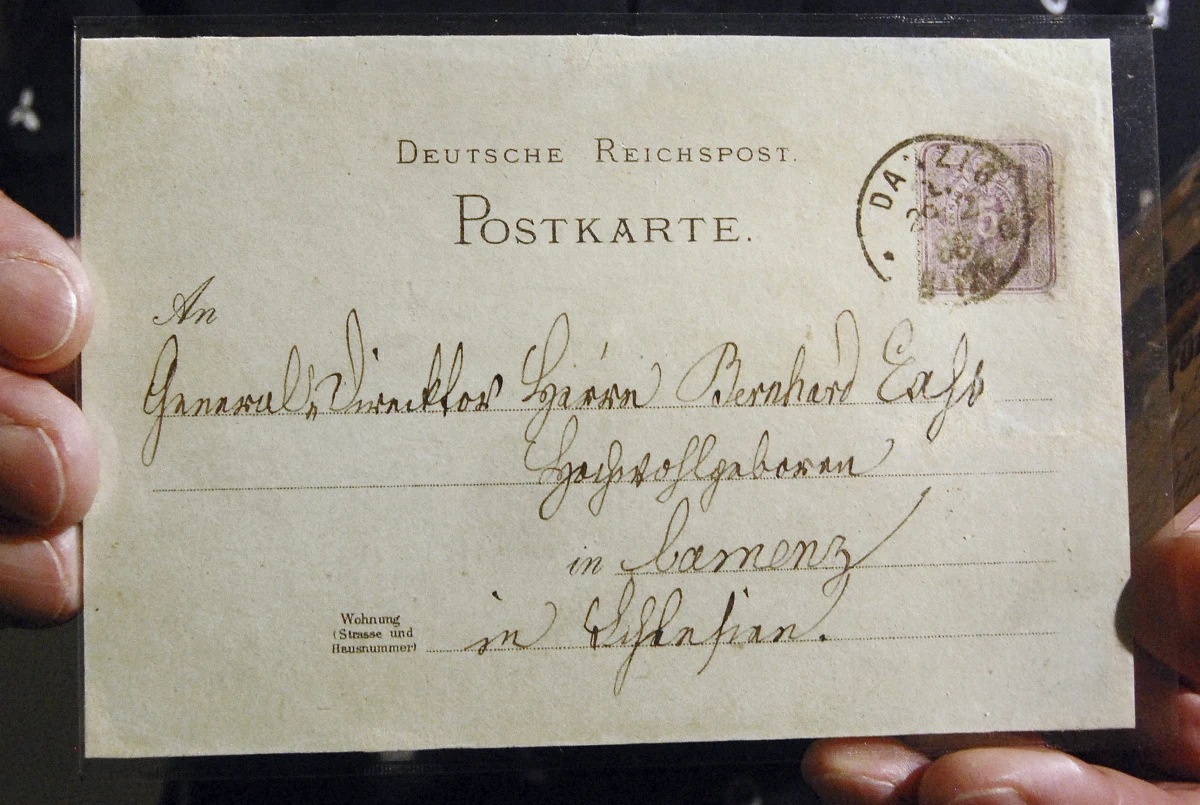 DEUTSCHE REICHSPOST.
POSTKARTE.
DANZIG
5
88
An
General-Direcktor Herrn Bernhard
Hochwohlgeboren
in Camenz
Wohnung
(Strasse und
Hausnummer)
in Schlesien.